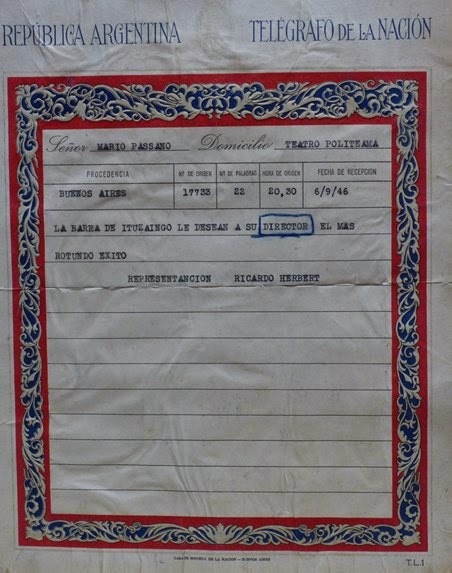 REPÚBLICA ARGENTINA TELÉGRAFO DE LA NACIÓN
Señor MARIO PASSANO Domicilio TEATRO POLITEAMA
PROCEDENCIA Nº DE ORIGEN Nº DE PALABRAS HORA DE ORIGEN FECHA DE RECEPCION
BUENOS AIRES 17733 22 20,30 6/9/46
LA BARRA DE ITUZAINGO LE DESEAN A SU DIRECTOR EL MAS
ROTUNDO EXITO
REPRESENTANCION RICARDO HERBERT
CASA DE MONEDA DE LA NACION - BUENOS AIRES
T.L.1